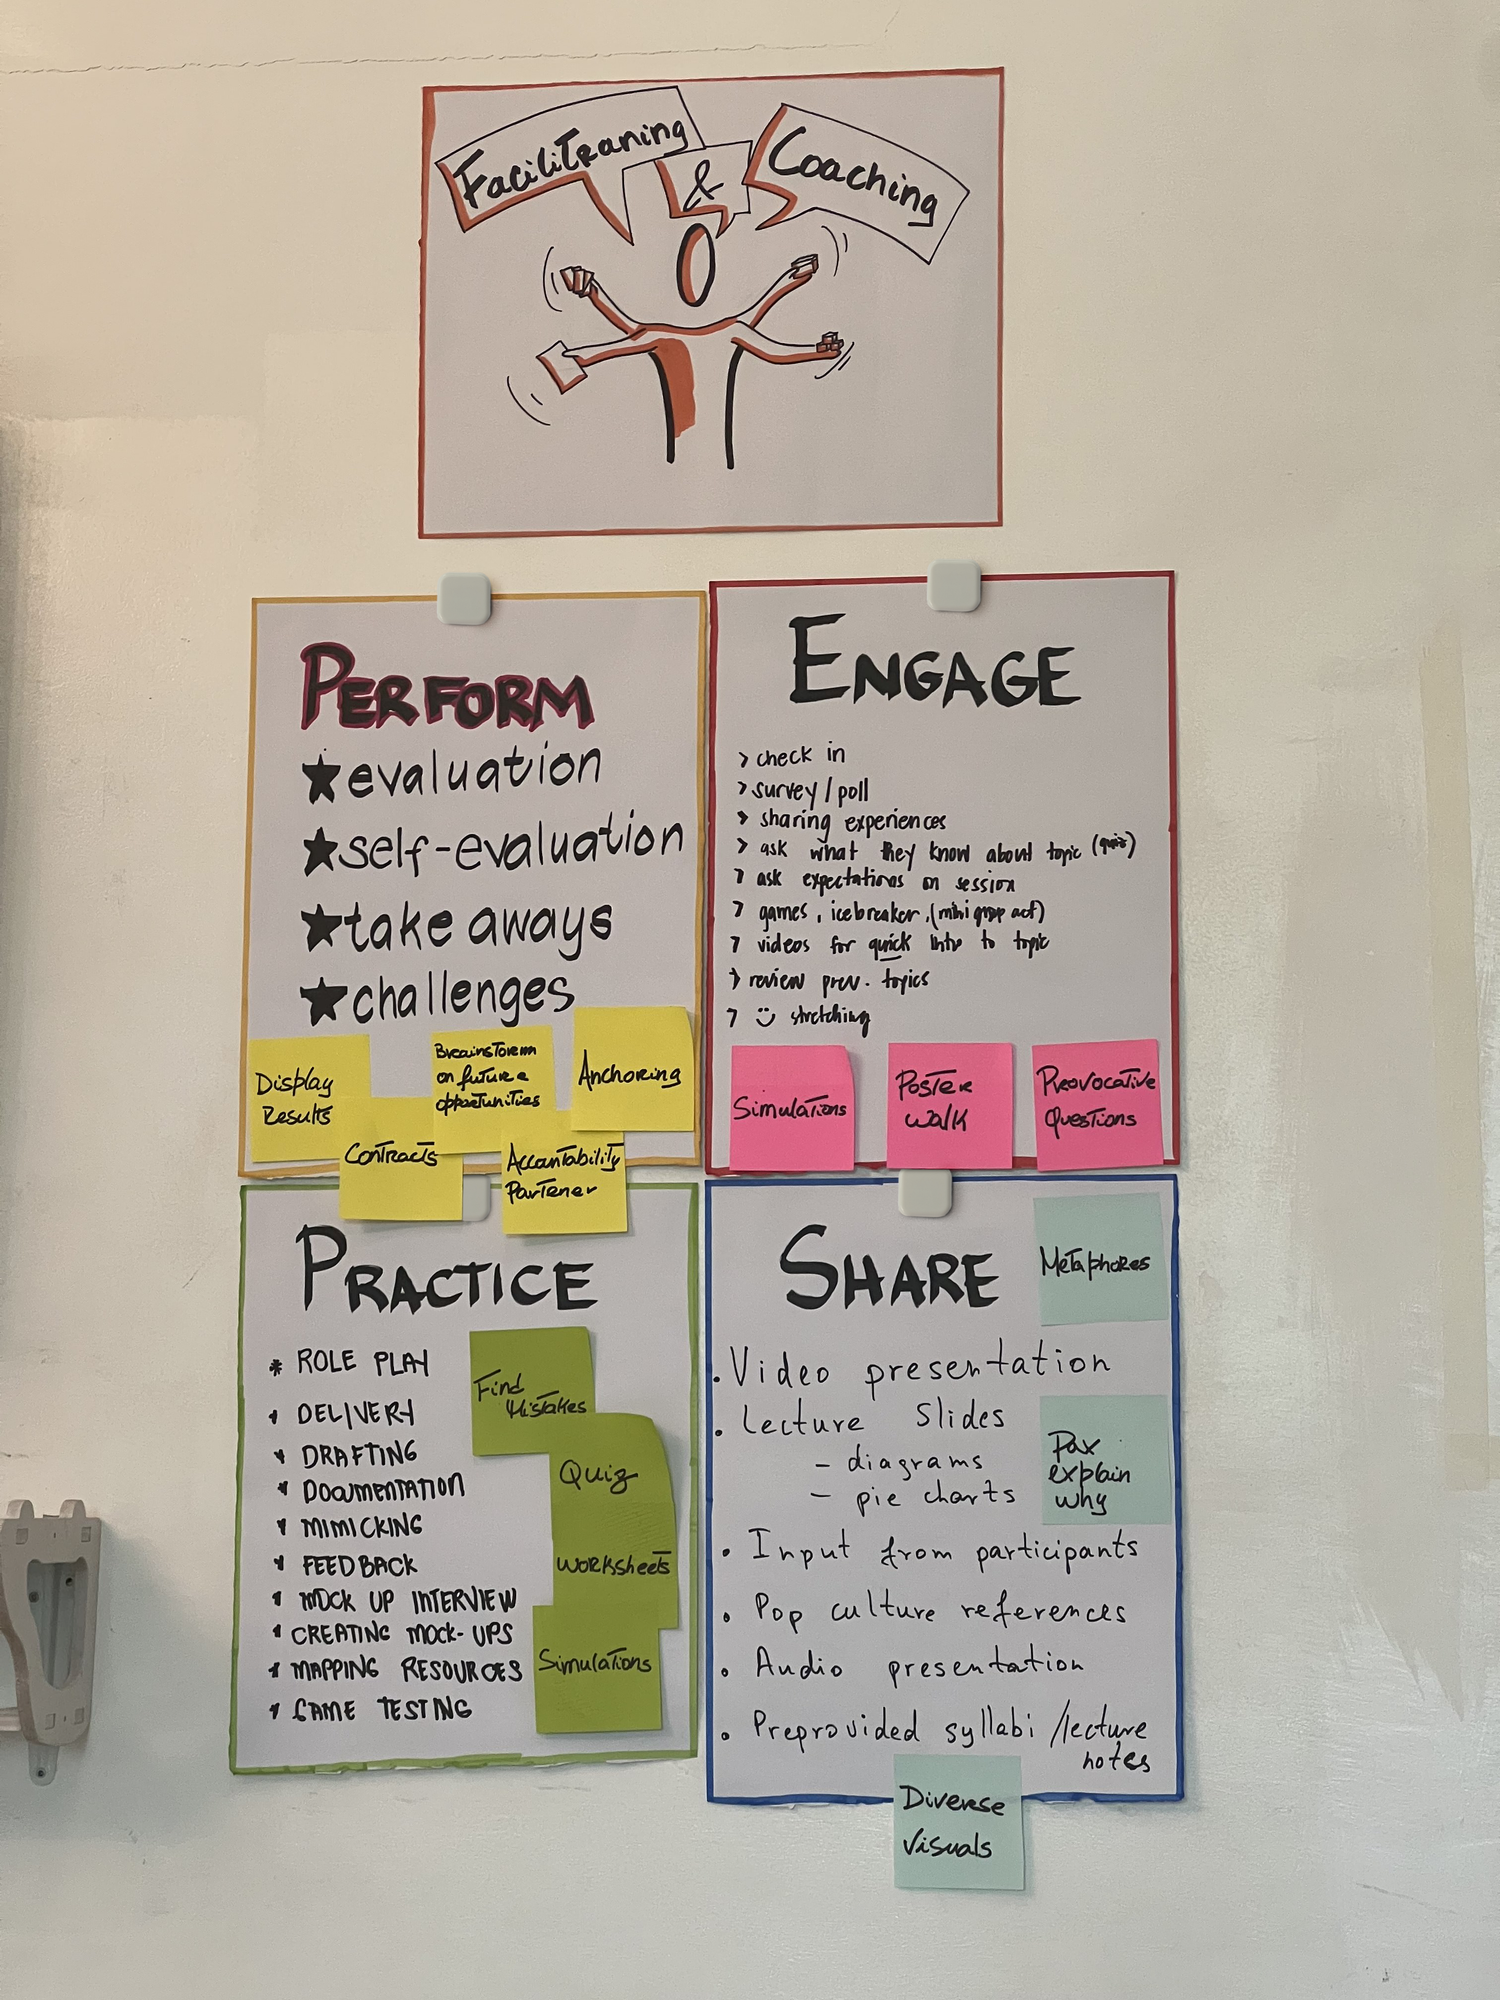 FaciliTraning
&
Coaching
PERFORM
evaluation
self-evaluation
take aways
challenges
Display
Results
Brainstorm
on future
opportunities
Anchoring
Contracts
Accantability
Partener
ENGAGE
> check in
> survey/poll
> sharing experiences
> ask what they know about topic (quiz)
> ask expectations on session
> games, icebreaker, (mini group act)
> videos for quick intro to topic
> review prev. topics
> stretching
Simulations
Poster
walk
Provocative
questions
PRACTICE
* ROLE PLAY
DELIVERY
DRAFTING
DOCUMENTATION
MIMICKING
FEEDBACK
MOCK UP INTERVIEW
CREATING MOCK-UPS
MAPPING RESOURCES
GAME TESTING
Find
Mistakes
Quiz
Worksheets
Simulations
SHARE
Metaphores
. Video presentation
. Lecture Slides
- diagrams
- pie charts
Pax
explain
why
. Input from participants
. Pop culture references
. Audio presentation
. Preprovided syllabi /lecture
notes
Diverse
Visuals